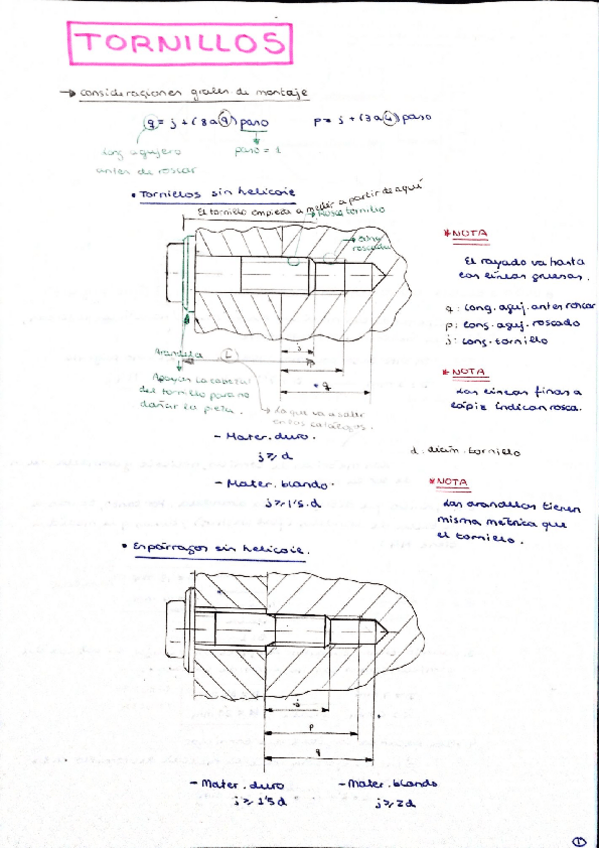 TORNILLOS
→ consideraciones grales de montaje
q = j + (8 a 9) paso
p = j + (3 a 4) paso
long agujero
antes de roscar
paso = 1
• Tornillos sin helicoie
El tornillo empieza a medir a partir de aquí
Rosca tornillo
roscado
* NOTA
El rayado va hasta
las líneas gruesas.
q: long. aguj. antes roscar
p: long. aguj. roscado
j: long. tornillo
j
q
Arandela
L
Apoyan la cabeza
del tornillo para no
dañar la pieza.
lo que va a salir
en los catálogos.
* NOTA
Las líneas finas a
lápiz indican rosca.
- Mater. duro.
j ≥ d
d: diám. tornillo
- Mater. blando.
j ≥ 1'5.d
* NOTA
Las arandelas tienen
misma métrica que
el tornillo.
• Espárragos sin helicoie.
j
p
q
- Mater. duro
j ≥ 1'5 d
- Mater. blando
j ≥ 2d
1